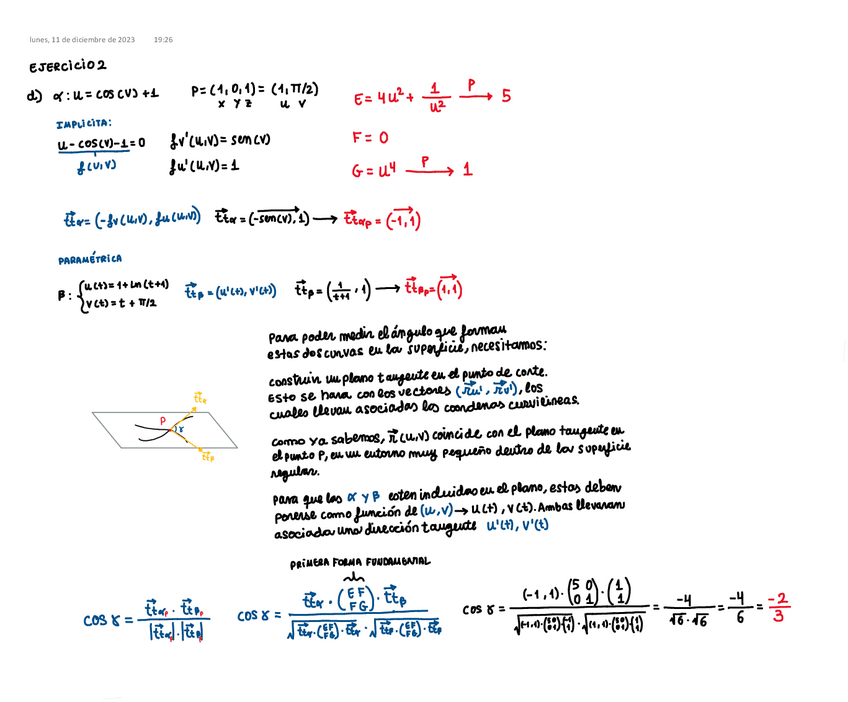 lunes, 11 de diciembre de 2023 19:26
EJERCICIO 2
d) α: u = cos(v) + 1 P = (1, 0, 1) = (1, π/2) E = 4u² + 1/u² →P 5
x y z u v
IMPLÍCITA:
u - cos(v) - 1 = 0 fv'(u,v) = sen(v) F = 0
f(u,v) fu'(u,v) = 1 G = u⁴ →P 1
ttα = (-fv(u,v), fu(u,v)) ttα = (-sen(v), 1) → ttαp = (-1, 1)
PARAMÉTRICA
β: { u(t) = 1 + ln(t+1) ttβ = (u'(t), v'(t)) ttβ = (1/(t+1), 1) → ttβp = (1, 1)
v(t) = t + π/2
Para poder medir el ángulo que forman
estas dos curvas en la superficie, necesitamos:
construir un plano tangente en el punto de corte.
Esto se hará con los vectores (ru', rv'), los
cuales llevan asociadas las coordenas curvilíneas.
Como ya sabemos, r(u,v) coincide con el plano tangente en
el punto P, en un entorno muy pequeño dentro de la superficie
regular.
Para que las α y β estén incluidas en el plano, estas deben
ponerse como función de (u,v) → u(t), v(t). Ambas llevaran
asociada una dirección tangente u'(t), v'(t)
ttα
P γ
ttβ
PRIMERA FORMA FUNDAMENTAL
cos γ = ttαp · ttβp / |ttαp| · |ttβp| cos γ = ttα · (E F F G) · ttβ / √(ttα · (E F F G) · ttα) · √(ttβ · (E F F G) · ttβ) cos γ = (-1, 1) · (5 0 0 1) · (1 1) / √((-1, 1) · (5 0 0 1) · (-1 1)) · √((1, 1) · (5 0 0 1) · (1 1)) = -4 / √6 · √6 = -4/6 = -2/3